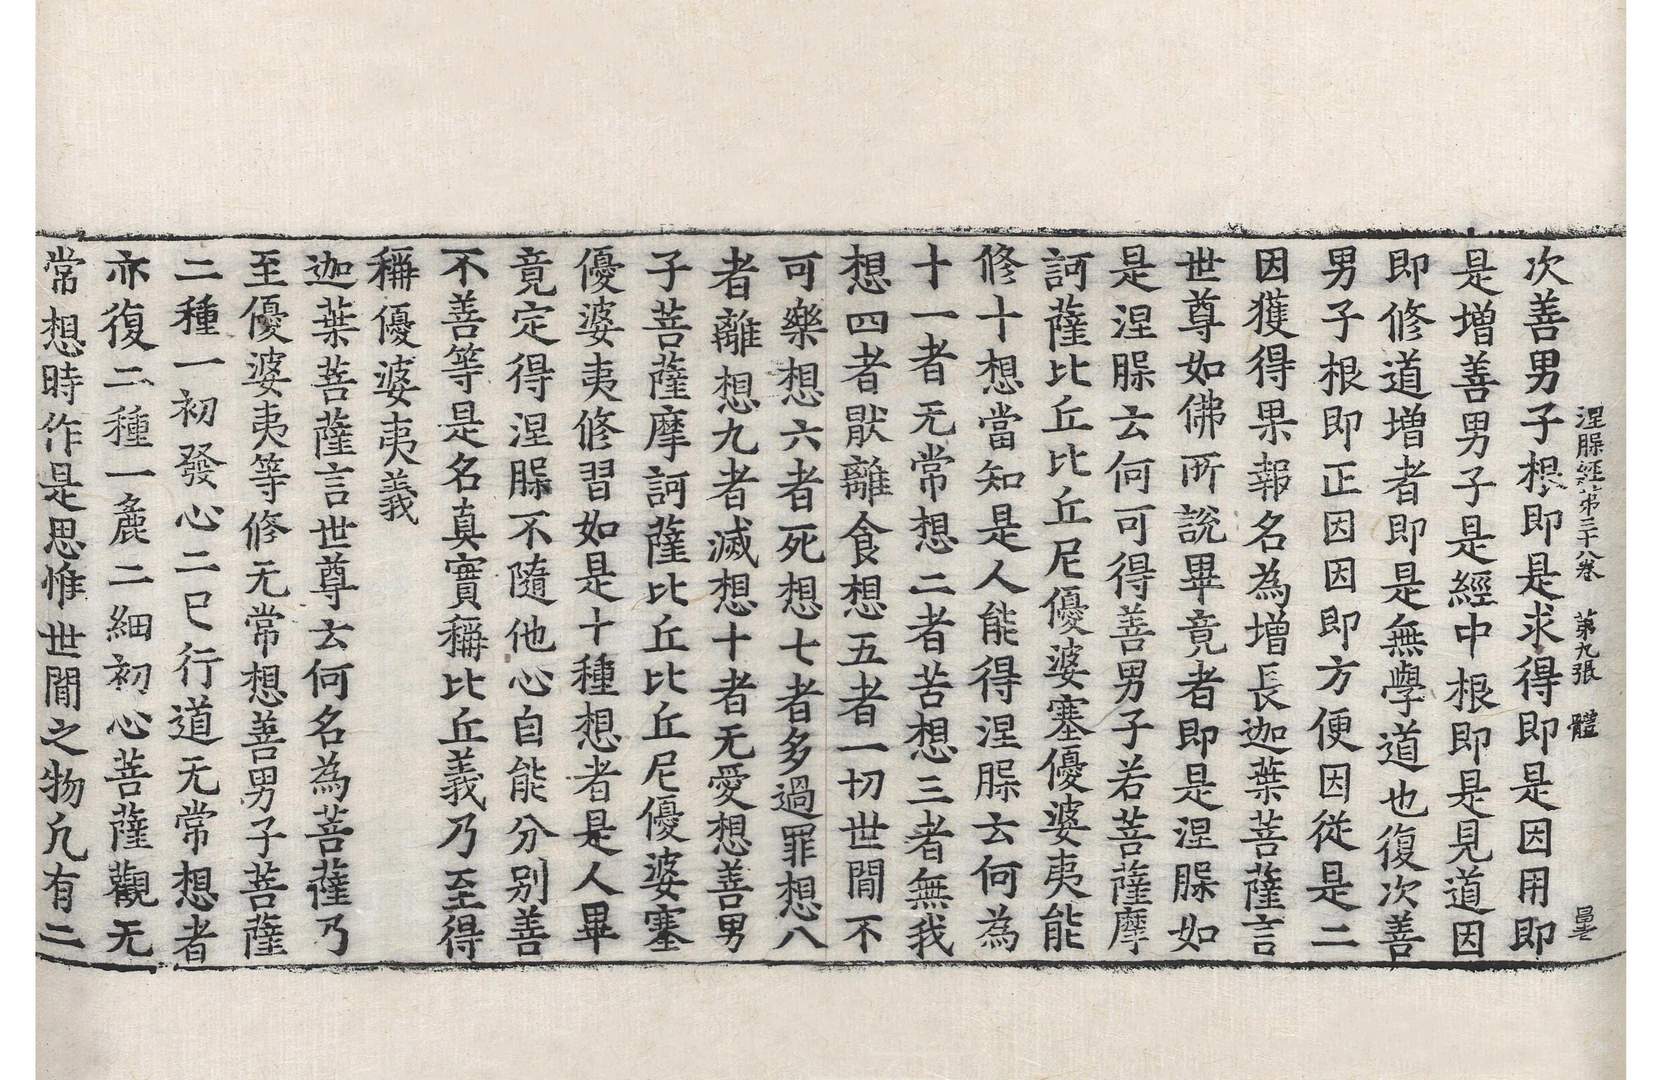 涅槃經第三十八卷　第九張　體
次善男子根即是求得即是因用即
是增善男子是經中根即是見道因
即修道增者即是無學道也復次善
男子根即正因因即方便因從是二
因獲得果報名為增長迦葉菩薩言
世尊如佛所說畢竟者即是涅槃如
是涅槃云何可得善男子若菩薩摩
訶薩比丘比丘尼優婆塞優婆夷能
修十想當知是人能得涅槃云何為
十一者无常想二者苦想三者無我
想四者猒離食想五者一切世間不
可樂想六者死想七者多過罪想八
者離想九者滅想十者无愛想善男
子菩薩摩訶薩比丘比丘尼優婆塞
優婆夷修習如是十種想者是人畢
竟定得涅槃不隨他心自能分別善
不善等是名真實稱比丘義乃至得
稱優婆夷義
迦葉菩薩言世尊云何名為菩薩乃
至優婆夷等修无常想善男子菩薩
二種一初發心二已行道无常想者
亦復二種一麁二細初心菩薩觀无
常想時作是思惟世間之物凡有二